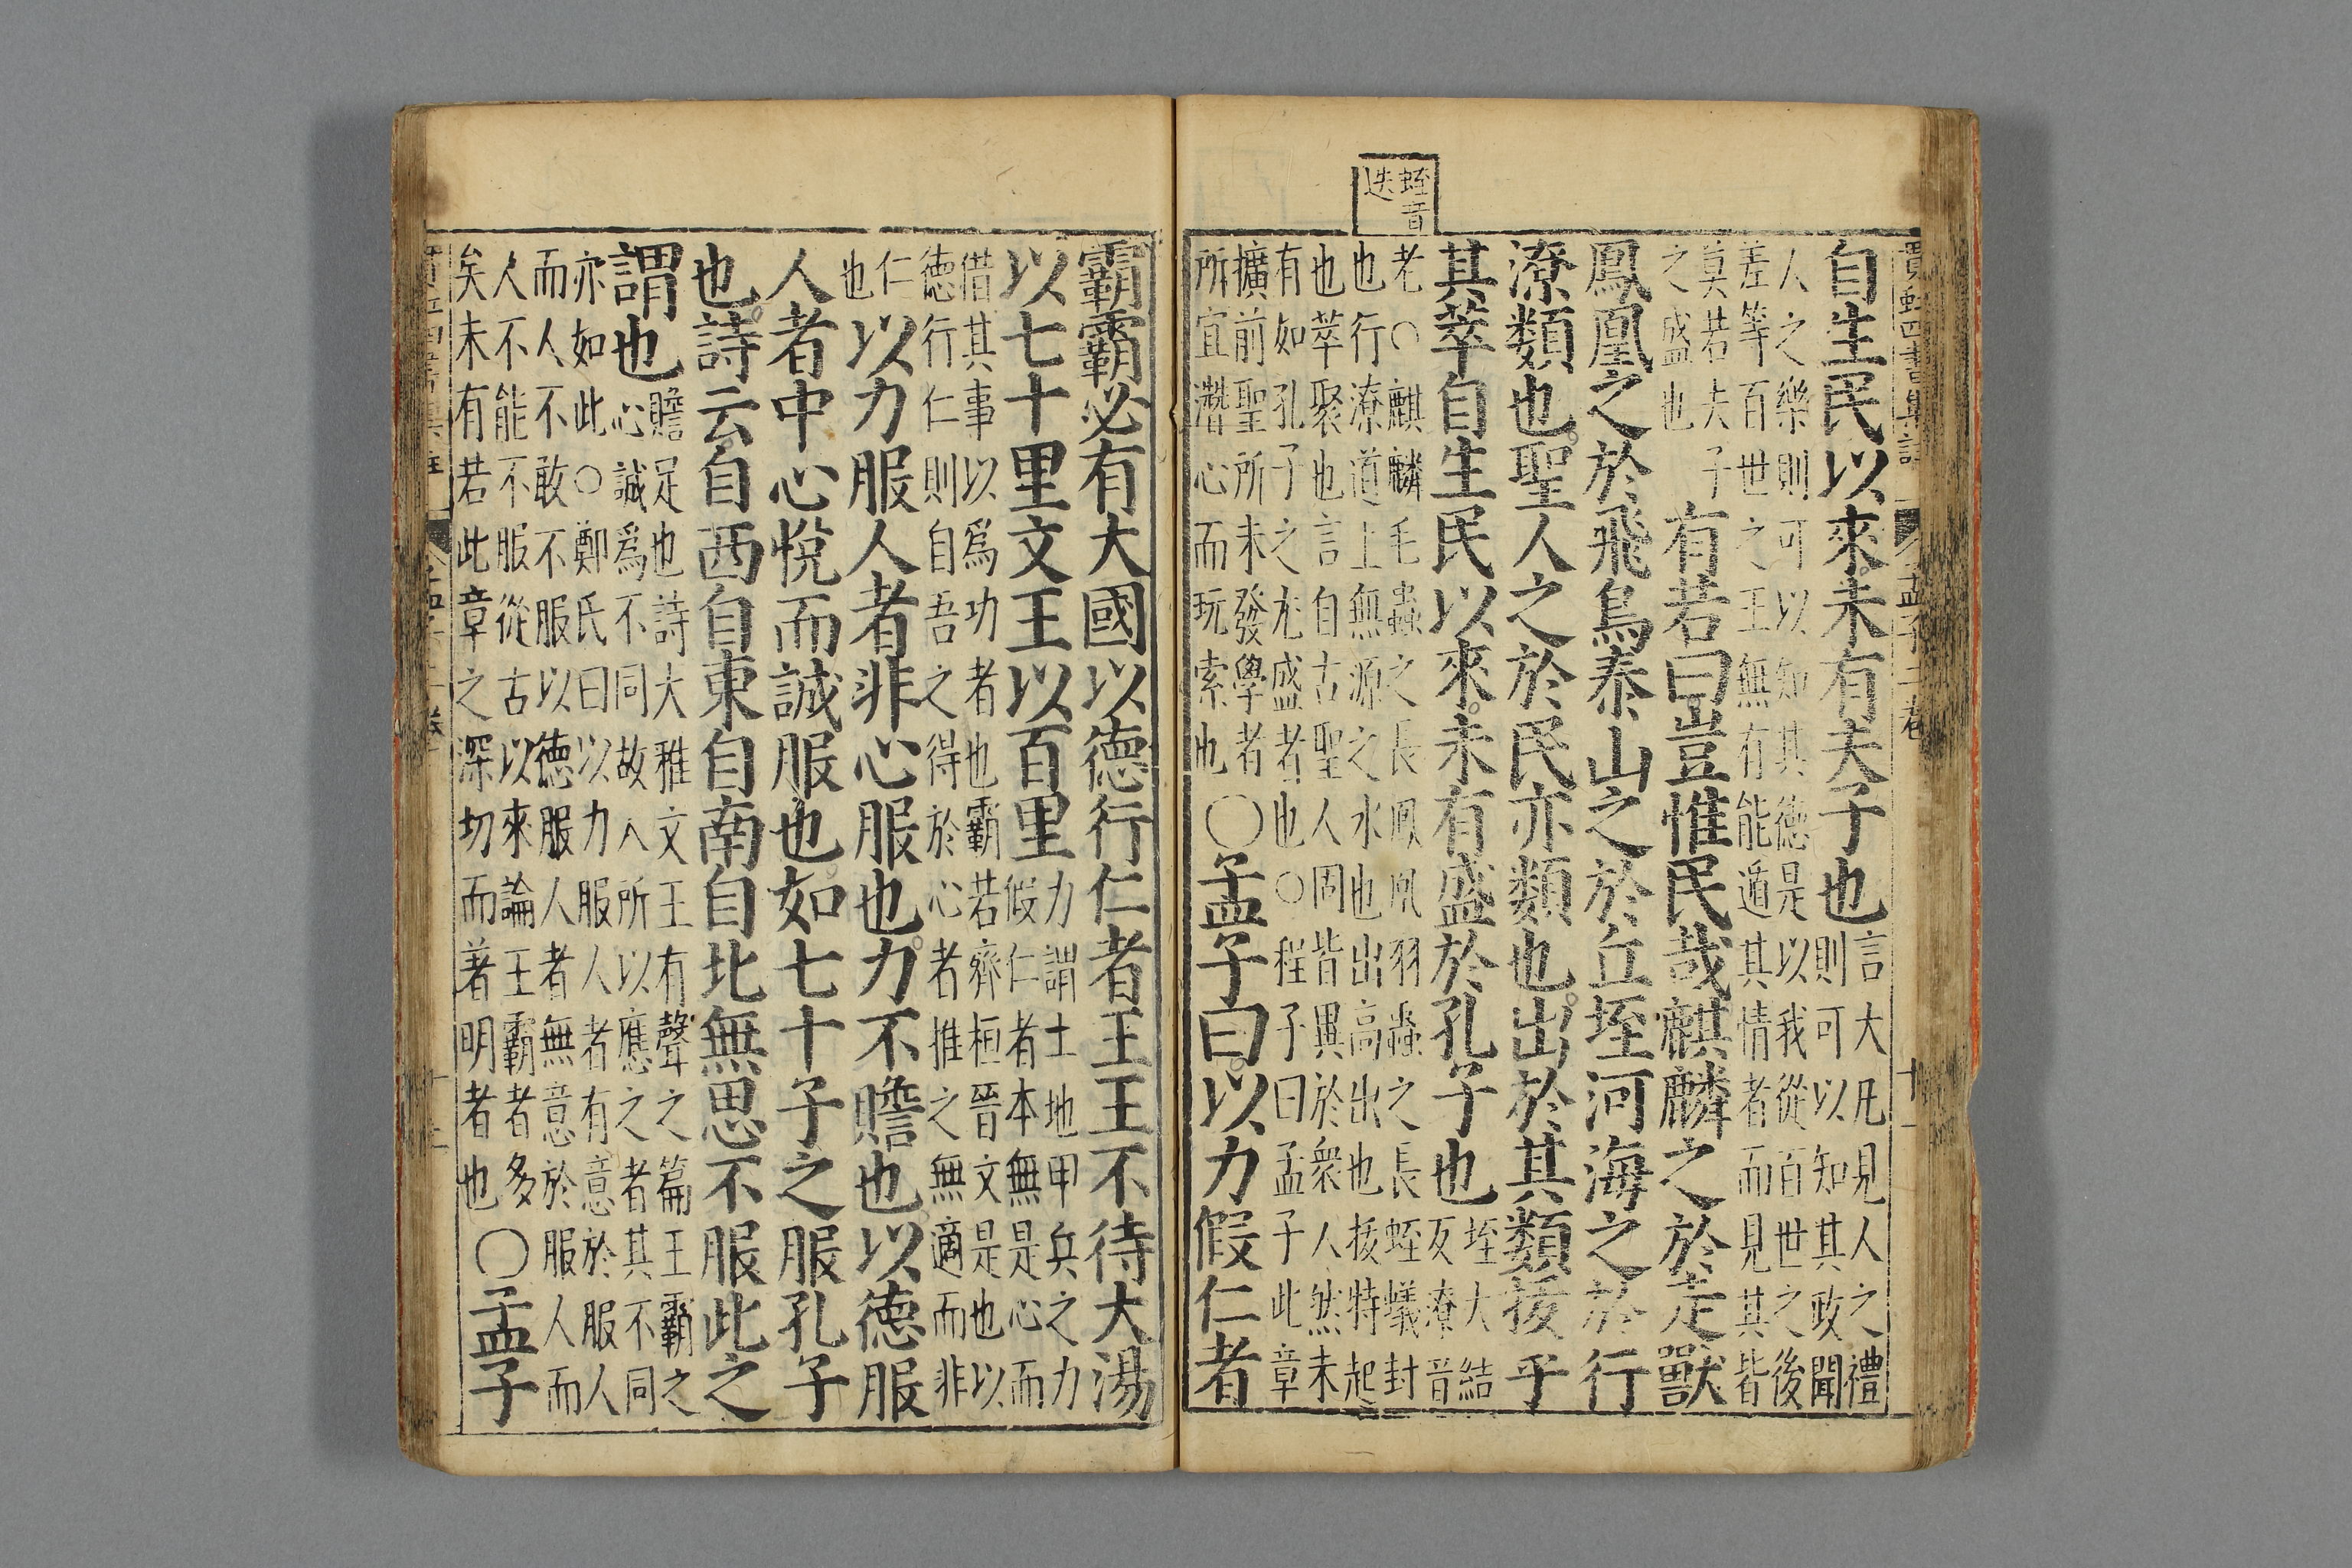 蛭音
迭
自生民以來未有夫子也
言大凡見人之禮
則可以知其政聞
人之樂則可以知其德是以我從百世之後
差等百世之王無有能遁其情者而見其皆
莫若夫子
之盛也
有若曰豈惟民哉麒麟之於走獸
鳳凰之於飛鳥泰山之於丘垤河海之於行
潦類也聖人之於民亦類也出於其類拔乎
其萃自生民以來未有盛於孔子也
垤大結
反潦音
老○麒麟毛蟲之長鳳凰羽蟲之長蛭蟻封
也行潦道上無源之水也出高出也拔特起
也萃聚也言自古聖人固皆異於衆人然未
有如孔子之尤盛者也○程子曰孟子此章
擴前聖所未發學者
所宜潛心而玩索也
○孟子曰以力假仁者
霸霸必有大國以德行仁者王王不待大湯
以七十里文王以百里
力謂土地甲兵之力
假仁者本無是心而
借其事以爲功者也霸若齊桓晉文是也以
德行仁則自吾之得於心者推之無適而非
仁
也
以力服人者非心服也力不贍也以德服
人者中心悅而誠服也如七十子之服孔子
也詩云自西自東自南自北無思不服此之
謂也
贍足也詩大雅文王有聲之篇王霸之
心誠爲不同故人所以應之者其不同
亦如此○鄭氏曰以力服人者有意於服人
而人不敢不服以德服人者無意於服人而
人不能不服從古以來論王霸者多
矣未有若此章之深切而著明者也
○孟子